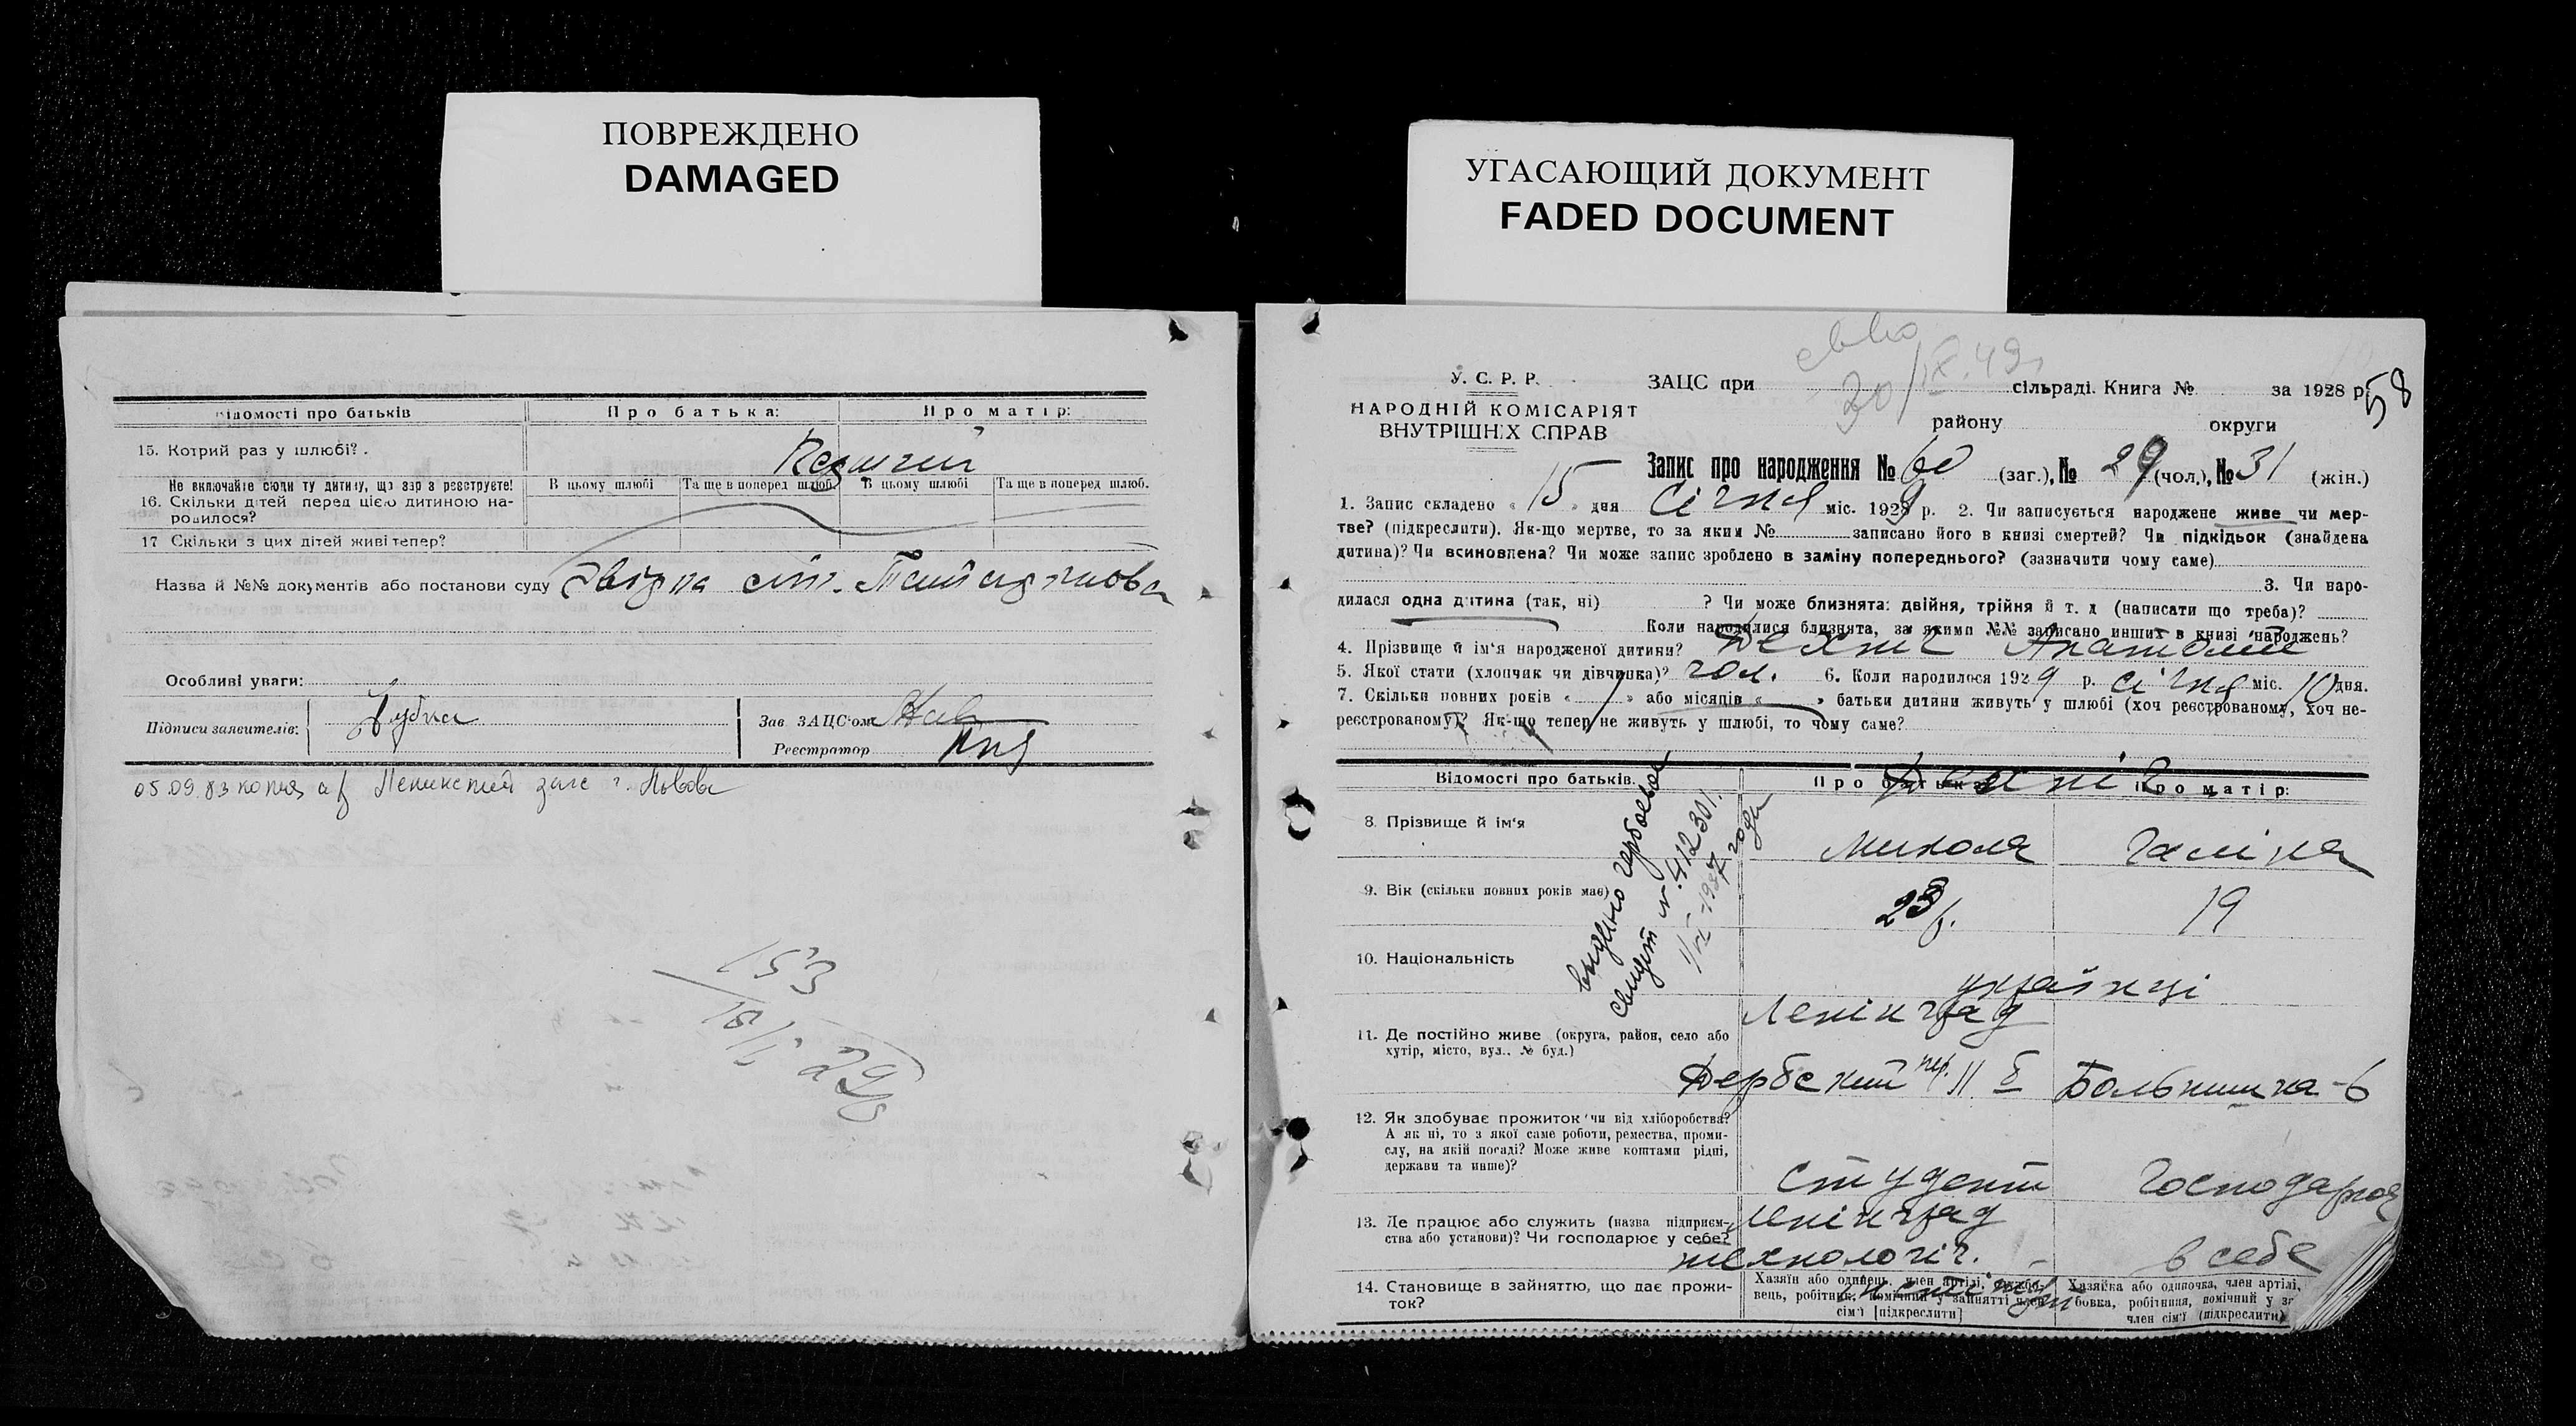 ПОВРЕЖДЕНО
DAMAGED
УГАСАЮЩИЙ ДОКУМЕНТ
FADED DOCUMENT
Відомості про батьків
Про батька:
Про матір:
15. Котрий раз у шлюбі?
Не включайте сюди ту дитину, що зар з реєструєте!
В цьому шлюбі
Та ще в поперед. шлюб.
В цьому шлюбі
Та ще в поперед. шлюб.
16. Скільки дітей перед цією дитиною на-
родилося?
17 Скільки з цих дітей живі тепер?
Назва й №№ документів або постанови суду
Особливі уваги:
Підписи заявителів:
Зав. ЗАЦС'ом
Реєстратор
05.09.83 копия а/ Ленинский загс г. Львова
153
У. С. Р. Р.
НАРОДНІЙ КОМІСАРІЯТ
ВНУТРІШНІХ СПРАВ
ЗАЦС при сільраді. Книга № за 1928 р. 58
30/IX.49
району округи
Запис про народження № 60 (заг.), № 29 (чол.), № 31 (жін.)
1. Запис складено « 15 » дня Січня міс. 1929 р. 2. Чи записується народжене живе чи мер-
тве? (підкреслити). Як-що мертве, то за яким № записано його в книзі смертей? Чи підкідьок (знайдена
дитина)? Чи всиновлена? Чи може запис зроблено в заміну попереднього? (зазначити чому саме)
3. Чи наро-
дилася одна дитина (так, ні) ? Чи може близнята: двійня, трійня й т. д (написати що треба)?
Коли народилися близнята, за якими №№ записано инших в книзі народжень?
4. Прізвище й ім'я народженої дитини? Анатолій
5. Якої стати (хлопчик чи дівчинка)? чол. 6. Коли народилося 1929 р. січня міс. 10 дня.
7. Скільки повних років « » або місяців « » батьки дитини живуть у шлюбі (хоч реєстрованому, хоч не-
реєстрованому)? Як-що тепер не живуть у шлюбі, то чому саме?
Відомості про батьків.
Про батька:
Про матір:
8. Прізвище й ім'я
Микола
Галіна
9. Вік (скільки повних років має)
23 р.
19
10. Національність
українці
выдано
свидет № 412301
1937 года
11. Де постійно живе (округа, район, село або
хутір, місто, вул.. № буд.)
Ленінград
Дербский пер. 11
Больнична-6
12. Як здобуває прожиток чи від хліборобства?
А як ні, то з якої саме роботи, ремества, проми-
слу, на якій посаді? Може живе коштами рідні,
держави та инше)?
Студент
Господарка
13. Де працює або служить (назва підприєм-
ства або установи)? Чи господарює у себе?
Ленінград
технологіч.
інститут
в себе
14. Становище в зайняттю, що дає прожи-
ток?
Хазяїн або одинець, член артілі, службо-
вець, робітник, помічний у зайнятті член
сім'ї [підкреслити]
Хазяйка або одиночка, член артілі,
бовка, робітниця, помічний у за
член сім'ї (підкреслити)